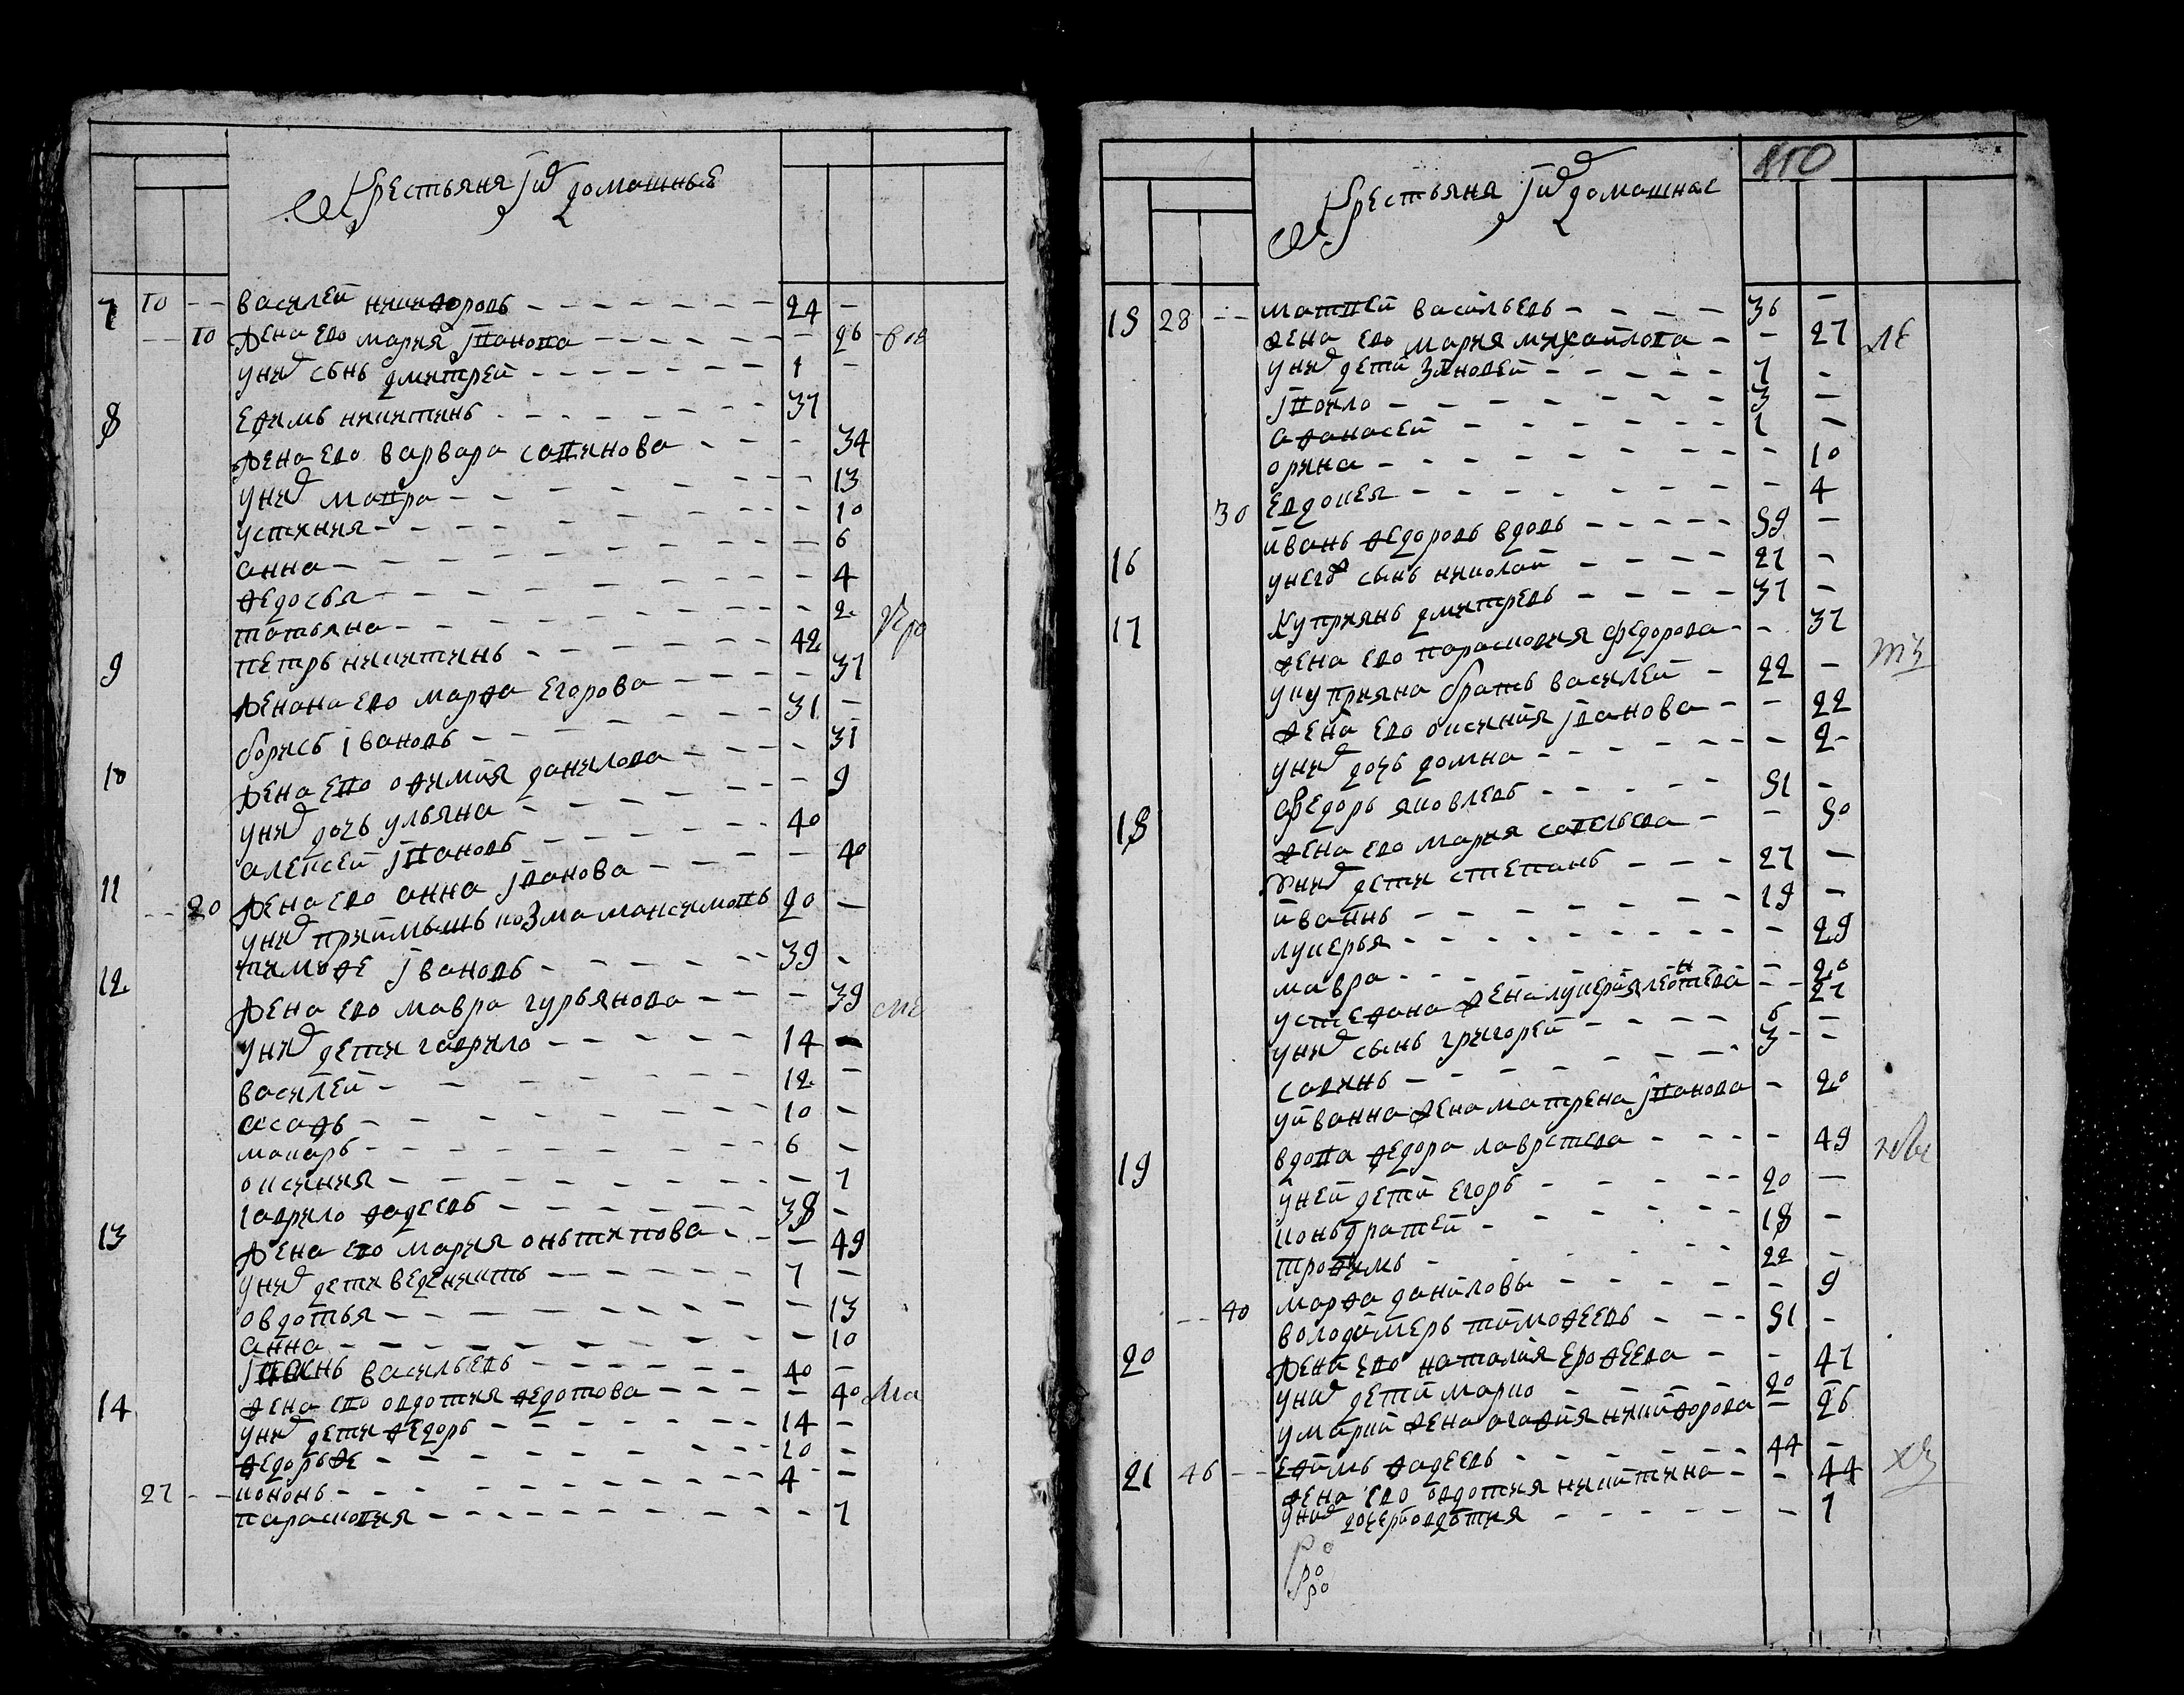 Крестьяня и их домашные
7 10 -- василей никифоровъ 24 -
-- 10 жена ево мария иванова - 26
у них сынъ дмитрей 1 -
8 ефимъ никитинъ 37
жена ево варвара савинова - 34
у них мавра - 13
устиния - 10
анна - 6
федосья - 4
татьяна - 2
9 петръ никитинъ 42
женана ево марфа егорова - 37
борисъ ивановъ 31 -
10 жена ево офимия данилова - 31
у них дочь ульяна - 9
алексей ивановъ 40
11 жена ево анна иванова - 40
-- 20 у них приймышь козма максимовъ 20 -
тимофе ивановъ 39 -
12 жена ево мавра гурьянова - 39
у них дети гаврило 14 -
василей 12 -
асафъ 10 -
макаръ 6 -
оксиния - 7
гаврило фадеевъ 38 -
13 жена ево мария оньтипова - 49
у них дети веденихтъ 7 -
овдотья - 13
анна - 10
иванъ васильевъ 40 -
14 жена ево овдотия федотова - 40
у них дети федоръ 14 -
федоръ же 10 -
27 -- кононъ 4 -
парасковия - 7
110
Крестьяня и их домашнае
15 28 -- матвей васильевъ 36 -
жена ево мария михаилова - 27
у них дети зиновей 7 -
ивойло 3 -
афонасей 1 -
орина - 10
30 евдокея - 4
иванъ федоровъ вдовъ 59 -
16 у него сынъ николай 27 -
17 куприянъ дмитревъ 37 -
жена ево парасковия федорова - 37
у куприяна братъ василей 22 -
жена ево оксиния иванова - 22
у них дочь домна - 2
федоръ яковлевъ 51 -
18 жена ево мария савельева - 50
у них дети степанъ 27 -
иваннъ 19 -
лукерья - 29
мавра - 20
у стефана жена лукерия леонтева - 27
у них сынъ григорей 6 -
савинъ 3 -
у иванна жена матрена иванова - 20
19 вдова федора лаврентева - 49
у ней дети егоръ 20 -
коньдратей 18 -
трофимъ 22 -
марфа даниловы - 9
-- 40 володимеръ тимофеевъ 51 -
20 жена ево наталия ерофеева - 47
у них дети марко 20 -
у марки жена агафия никифорова - 26
21 46 -- ефимъ фадеевъ 44 -
жена ево овдотия никитина - 44
у них дочерь овдотия - 7